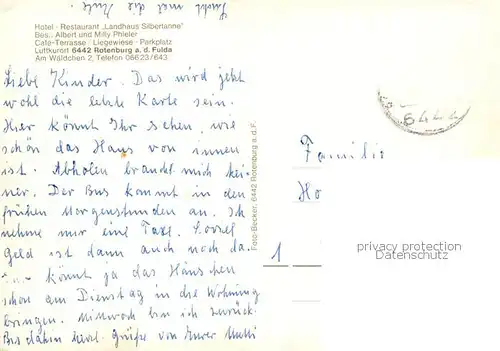 sucht mal die
Hotel · Restaurant „Landhaus Silbertanne"
Bes.: Albert und Milly Phieler
Cafe-Terrasse · Liegewiese · Parkplatz
Luftkurort 6442 Rotenburg a. d. Fulda
Am Wäldchen 2, Telefon 06623/643
Liebe Kinder. Das wird jetzt
wohl die letzte Karte sein.
Hier könnt Ihr sehen, wie
schön das Haus von innen
ist. Abholen braucht mich kei-
ner. Der Bus kommt in den
frühen Morgenstunden an. Ich
nehme mir eine Taxe. Soviel
Geld ist dann auch noch da.
könnt ja das Häuschen
schon am Dienstag in die Wohnung
bringen. Mittwoch bin ich zurück.
Bis dahin herzl. Grüße von Eurer Mutti
Foto-Becker, 6442 Rotenburg a.d.F.
6442
Familie
Ho
1
privacy protection
Datenschutz